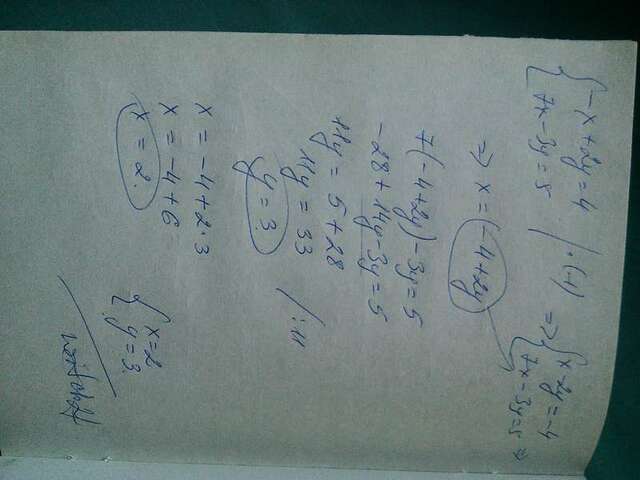 {-x + 2y = 4 /·(-1) => {x - 2y = -4
{7x - 3y = 5 {7x - 3y = 5 =>
=> x = (-4 + 2y)
7(-4 + 2y) - 3y = 5
-28 + 14y - 3y = 5
11y = 5 + 28
11y = 33 /:11
y = 3
x = -4 + 2·3
x = -4 + 6
x = 2.
{x = 2
{y = 3.